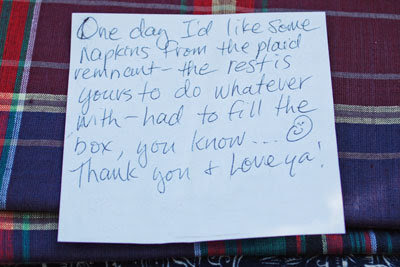 One day I'd like some
napkins from the plaid
remnant - the rest is
yours to do whatever
with - had to fill the
box, you know... ☺
Thank you & Love ya!